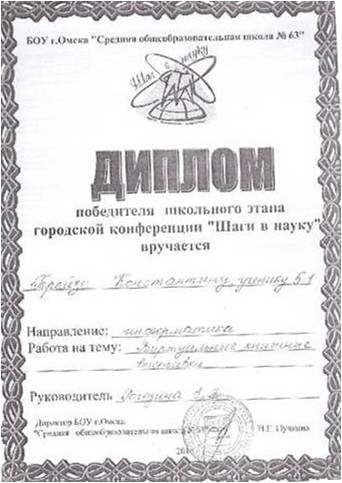 БОУ г.Омска "Средняя общеобразовательная школа № 63"
Шаг в науку
ДИПЛОМ
победителя школьного этапа
городской конференции "Шаги в науку"
вручается
Константину, ученику 5 1
Направление: информатика
Работа на тему: Виртуальные книжные
выставки
Руководитель
Директор БОУ г.Омска
"Средняя общеобразовательная школа